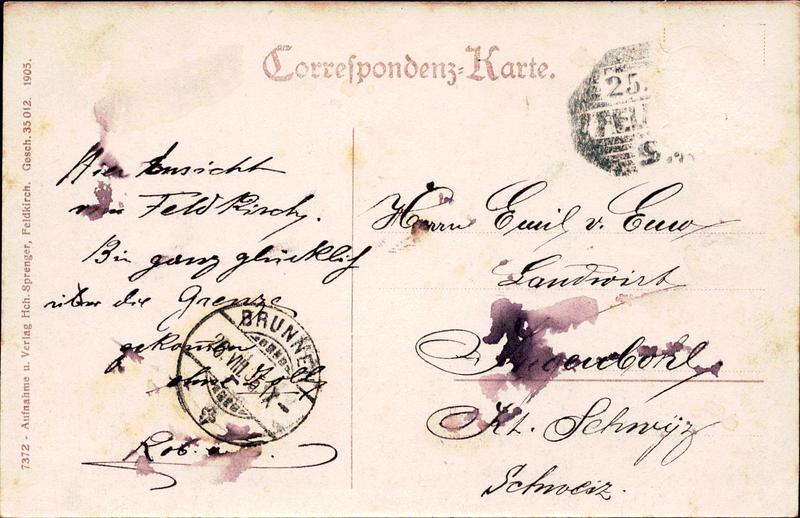 Correspondenz-Karte.
25.
FEL
Hier Ansicht
von Feldkirch.
Bin ganz glücklich
über die Grenze
gekommen
Herrn Emil v. Euw
Landwirt
Ingenbohl
Kt. Schwyz
Schweiz.
BRUNNEN
7372 - Aufnahme u. Verlag Hch. Sprenger, Feldkirch. Gesch. 35 012. 1905.